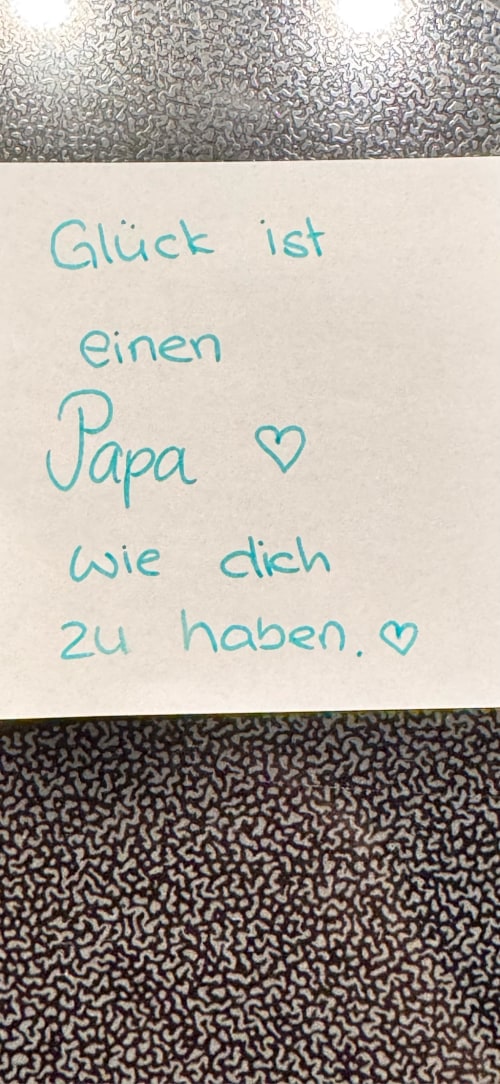 Glück ist
einen
Papa ♡
wie dich
zu haben. ♡